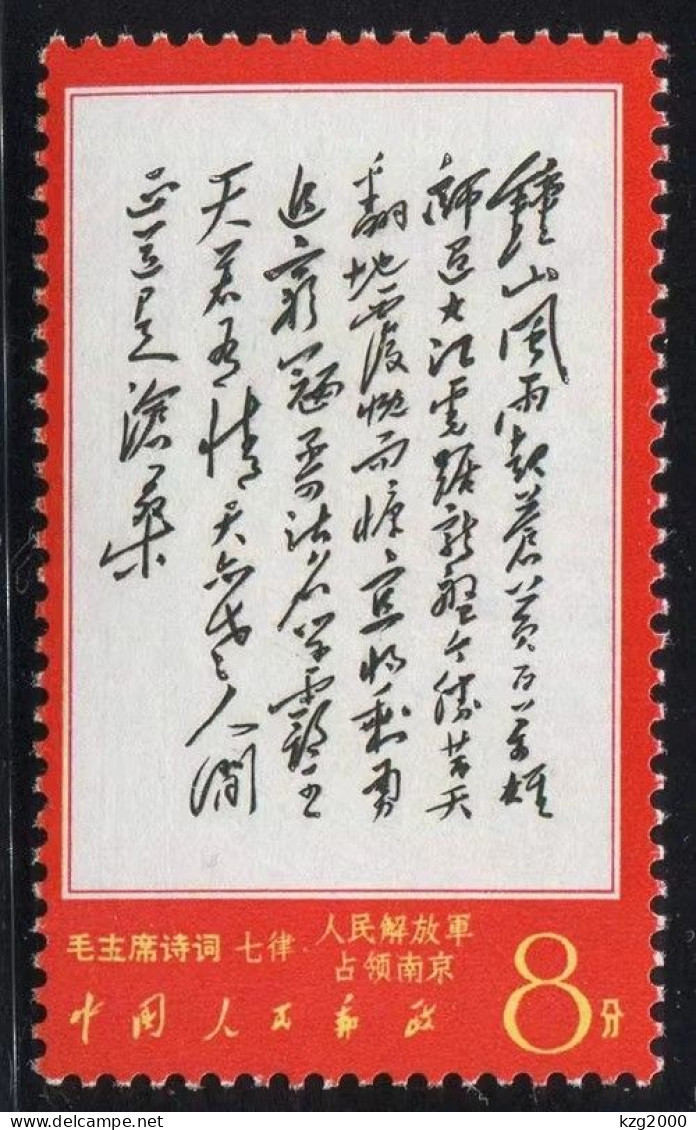 鍾山風雨起蒼黃百萬雄
師過大江虎踞龍盤今勝昔天
翻地覆慨而慷宜將剩勇
追窮寇不可沽名學霸王
天若有情天亦老人間
正道是滄桑
毛主席诗词 七律·人民解放軍
占领南京
中国人民邮政
8分
kzg2000
delcampe.net